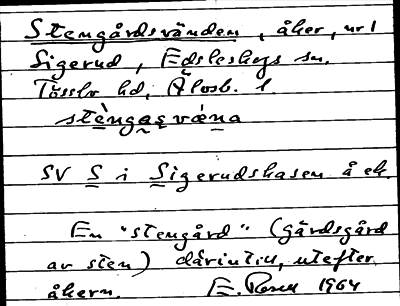 Stengårdsvänden, åker, nr 1
Sigerud, Edsleskogs sn.
Tössbo hd, Älvsb. l.
stèngasvǽna
SV S i Sigerudshasen å ek.
En "stengård" (gärdsgård
av sten) därintill, utefter
åkern. E. Rosell 1964